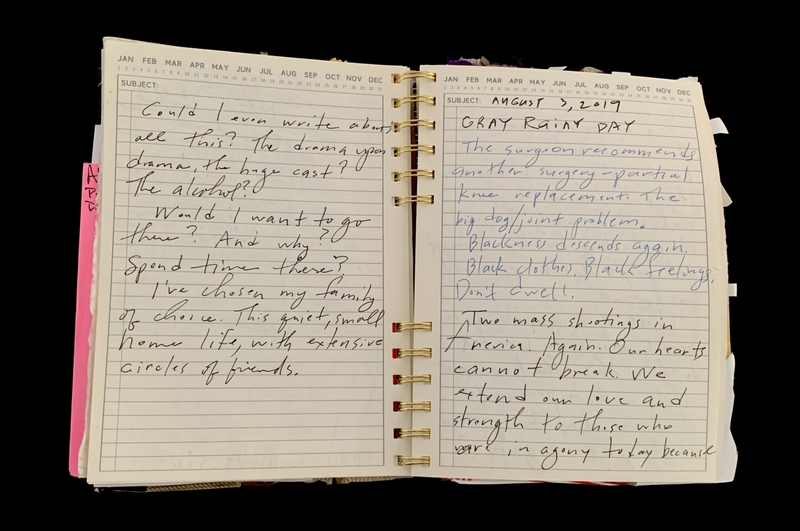 JAN FEB MAR APR MAY JUN JUL AUG SEP OCT NOV DEC
SUBJECT:
Could I even write about
all this? The drama upon
drama, the huge cast?
The alcohol?
Would I want to go
there? And why?
Spend time there?
I've chosen my family
of choice. This quiet, small
home life, with extensive
circles of friends.
JAN FEB MAR APR MAY JUN JUL AUG SEP OCT NOV DEC
SUBJECT: AUGUST 3, 2019
GRAY RAINY DAY
The surgeon recommends
another surgery-partial
knee replacement. The
big dog/joint problem.
Blackness descends again.
Black clothes. Black feelings.
Don't dwell.
Two mass shootings in
America. Again. Our hearts
cannot break. We
extend our love and
strength to those who
are in agony today because